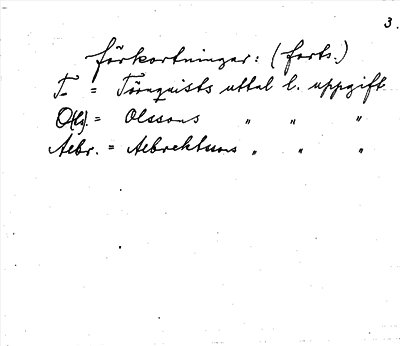 3.
Förkortningar: (forts.)
T. = Törnquists uttal l. uppgift
O(ls). = Olssons " " "
Aebr. = Aebrektsons " " "